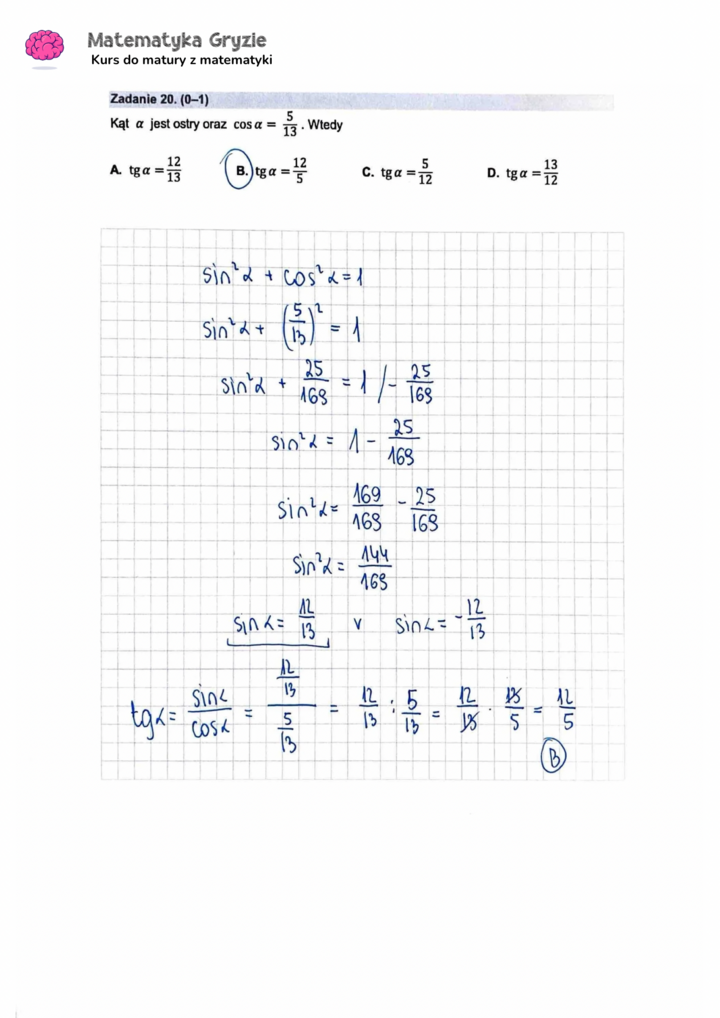 Matematyka Gryzie
Kurs do matury z matematyki
Zadanie 20. (0–1)
Kąt α jest ostry oraz cos α = 5/13 . Wtedy
A. tg α = 12/13 B. tg α = 12/5 C. tg α = 5/12 D. tg α = 13/12
sin²α + cos²α = 1
sin²α + (5/13)² = 1
sin²α + 25/169 = 1 /- 25/169
sin²α = 1 - 25/169
sin²α = 169/169 - 25/169
sin²α = 144/169
sin α = 12/13 v sin α = -12/13
tg α = sin α/cos α = (12/13)/(5/13) = 12/13 : 5/13 = 12/13 · 13/5 = 12/5
B